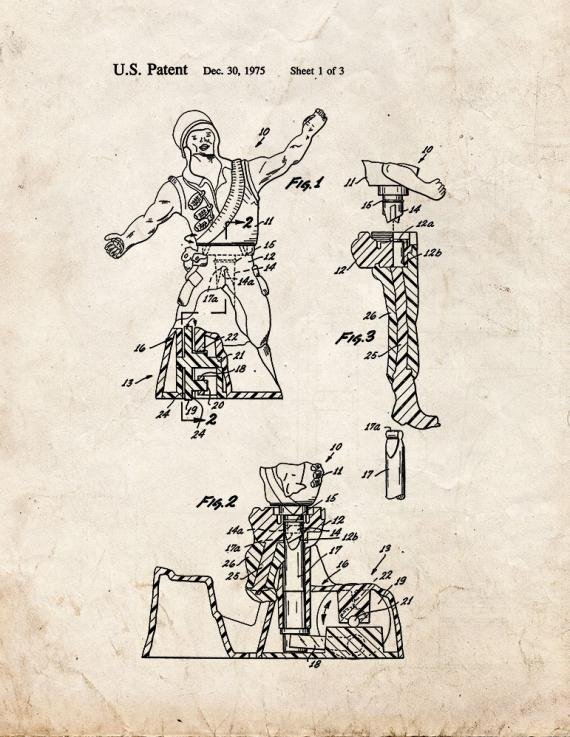 U.S. Patent Dec. 30, 1975 Sheet 1 of 3
10
Fig. 1
11
2
15
12
14
14a
17a
16
22
21
18
13
24
19
20
2
24
10
11
15
14
12a
12b
12
26
Fig. 3
25
17a
17
10
11
Fig. 2
15
14a
12
14
17a
12b
26
17
25
16
13
22
19
21
18